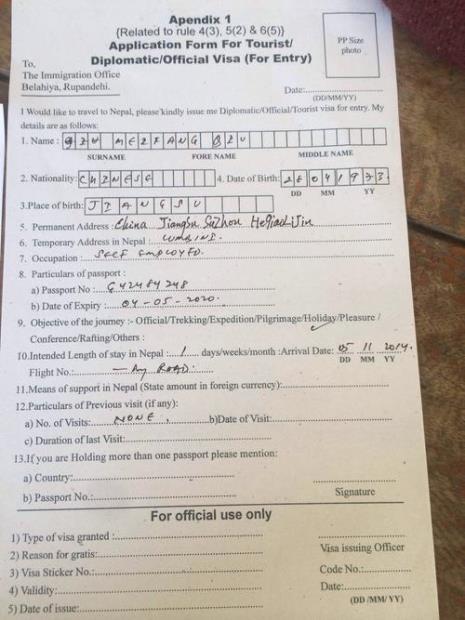 Apendix 1
{Related to rule 4(3), 5(2) & 6(5)}
Application Form For Tourist/
Diplomatic/Official Visa (For Entry)
PP Size
photo
To,
The Immigration Office
Belahiya, Rupandehi.
Date:
(DD/MM/YY)
I Would like to travel to Nepal, please kindly issue me Diplomatic/Official/Tourist visa for entry. My
details are as follows:
1. Name :
SURNAME FORE NAME MIDDLE NAME
2. Nationality: CHINESE 4. Date of Birth:
DD MM YY
3.Place of birth: JIANGSU
5. Permanent Address : China Jiangsu SuZhou
6. Temporary Address in Nepal :
7. Occupation : SELF EMPLOYED.
8. Particulars of passport :
a) Passport No : G42484248
b) Date of Expiry : 04-05-2020.
9. Objective of the journey :- Official/Trekking/Expedition/Pilgrimage/Holiday/Pleasure /
Conference/Rafting/Others :
10.Intended Length of stay in Nepal : 1 days/weeks/month :Arrival Date: 05 11 2014.
DD MM YY
Flight No.: ROAD.
11.Means of support in Nepal (State amount in foreign currency):
12.Particulars of Previous visit (if any):
a) No. of Visits: NONE. b)Date of Visit:
c) Duration of last Visit:
13.If you are Holding more than one passport please mention:
a) Country:
b) Passport No.:
Signature
For official use only
1) Type of visa granted :
2) Reason for gratis:
Visa issuing Officer
3) Visa Sticker No.:
Code No.:
4) Validity:
Date:
5) Date of issue:
(DD /MM/ YY)